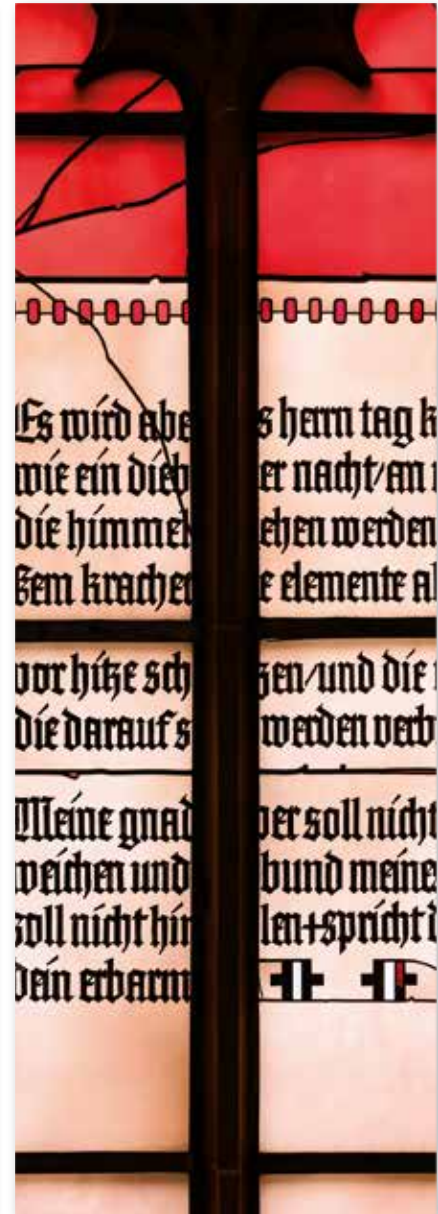 Es wird abe s herrn tag k
wie ein dieb er nacht/an
die himmel ehen werden
ßem krachen e elemente al
vor hitze sch zen/und die
die darauf s werden verb
Meine gnad ber soll nicht
weichen und bund meine
soll nicht hin len+spricht d
dein erbarm